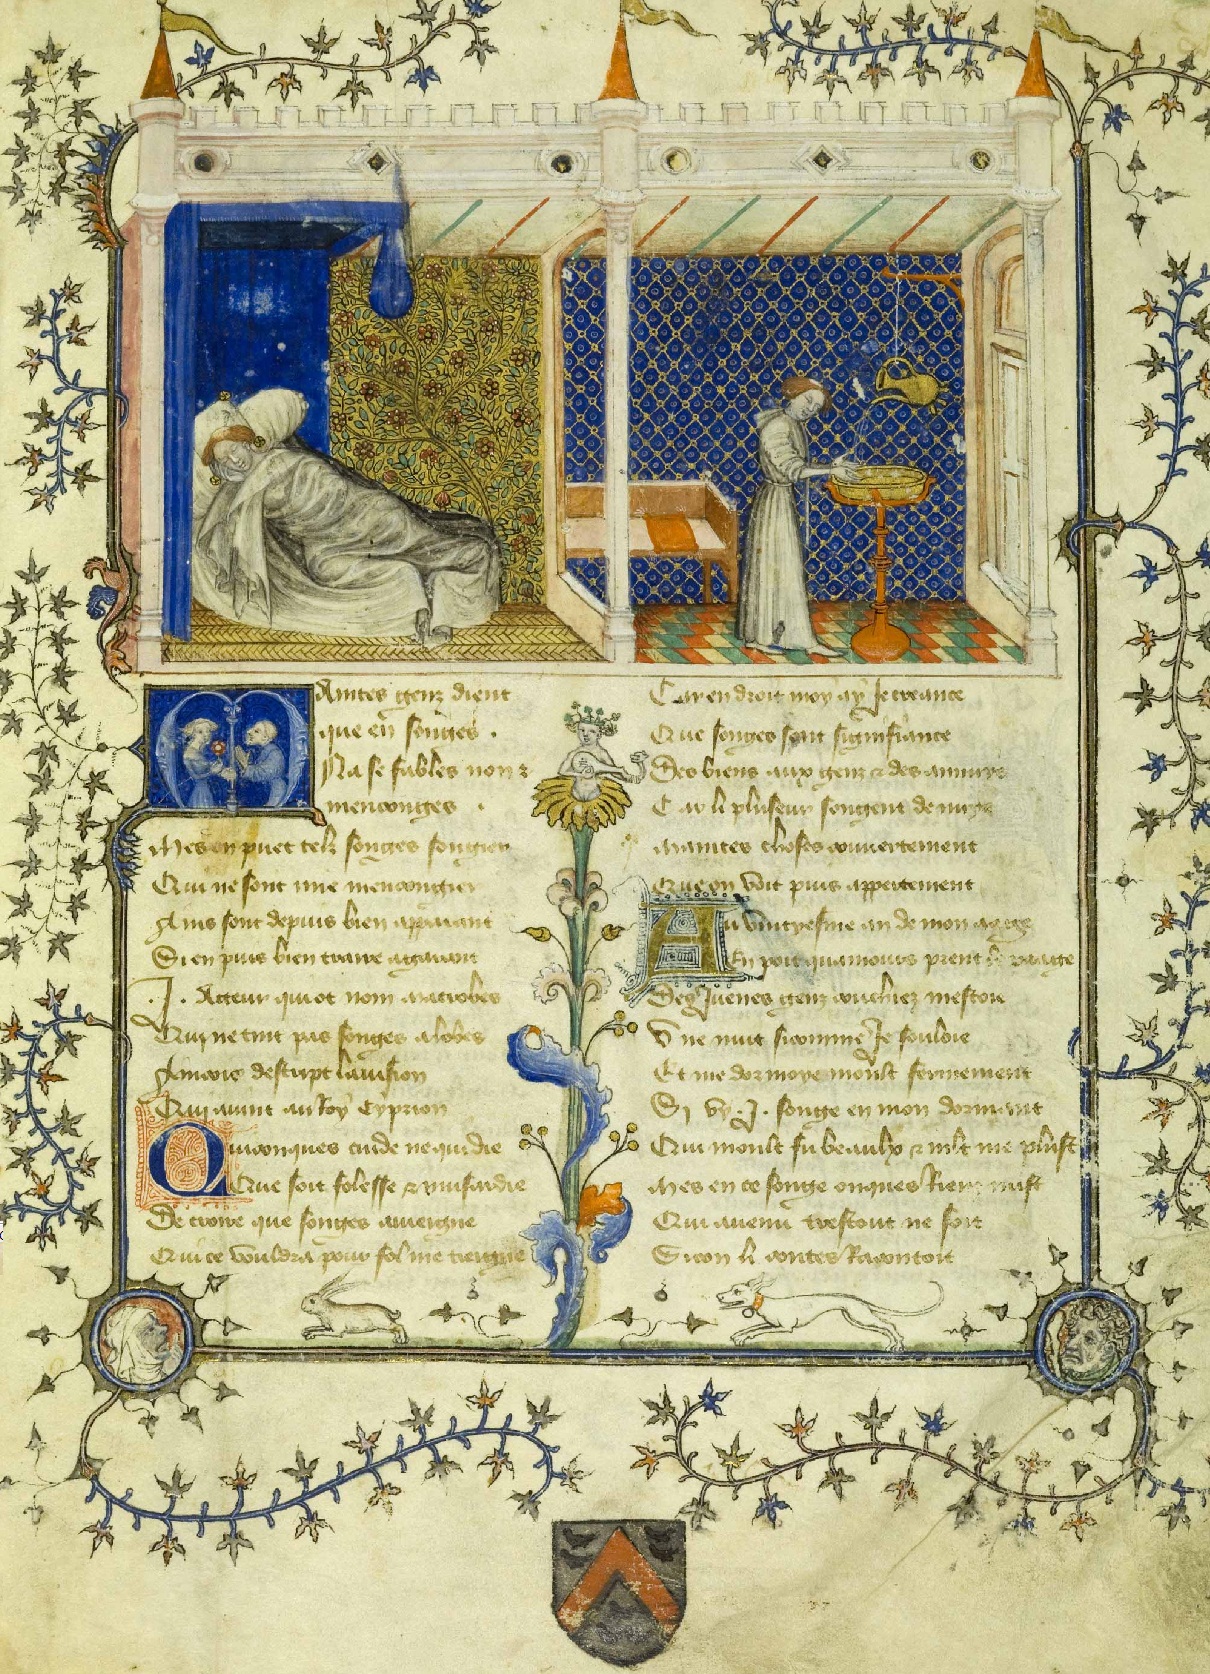 Maintes genz dient
que en songes
Na se fables non &
menconges
Mes on puet telz songes songier
Qui ne sont mie mencongier
Ains sont depuis bien apparant
Si en puis bien traire a garant
.J. Acteur qui ot nom Macrobes
Qui ne tint pas songes a lobes
Aincois descript lavision
Qui avint au Roy Cyprion
Quiconques cuide ne qui die
Que soit folesse & musardie
De croire que songes aviengne
Qui ce vouldra pour fol me tiengne
Car en droit moy ay Je creance
Que songes sont signifiance
Des biens aux genz & des annuys
Car li pluseur songent de nuyz
Maintes choses couvertement
Que on voit puis appertement
Au vintyesme an de mon aage
En point quamours prent le paage
Des Juenes genz couchiez mestoie
Une nuit si comme Je souloie
Et me dormoye moult forment
Si vy .J. songe en mon dormant
Qui moult fu beaulx & mlt me plust
Mes en ce songe onques Riens nust
Qui avenu trestout ne soit
Si con li contes Racontoit